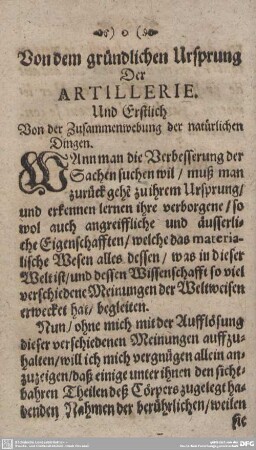 ) o (
Von dem gründlichen Ursprung
Der
ARTILLERIE.
Und Erstlich
Von der Zusammenwebung der natürlichen
Dingen.
WAnn man die Verbesserung der
Sachen suchen wil / muß man
zurück gehẽ zu ihrem Ursprung/
und erkennen lernen ihre verborgene / so
wol auch angreiffliche und äusserli-
che Eigenschafften / welche das materia-
lische Wesen alles dessen / was in dieser
Welt ist/ und dessen Wissenschafft so viel
verschiedene Meinungen der Weltweisen
erwecket hat / begleiten.
Nun / ohne mich mit der Aufflösung
dieser verschiedenen Meinungen auffzu-
halten / will ich mich vergnügen allein an-
zuzeigen/ daß einige unter ihnen den sicht-
bahren Theilen deß Cörpers zugelegt ha-
benden Nahmen der berührlichen/ weilen
sie
DFG